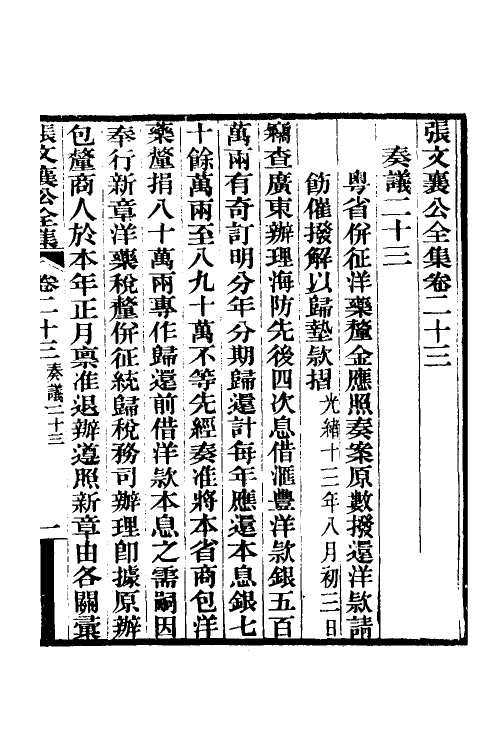 張文襄公全集卷二十三
奏議二十三
粵省併征洋藥釐金應照奏案原數撥還洋款請
飭催撥解以歸墊款摺光緒十三年八月初三日
竊查廣東辦理海防先後四次息借滙豐洋款銀五百
萬兩有奇訂明分年分期歸還計每年應還本息銀七
十餘萬兩至八九十萬不等先經奏准將本省商包洋
藥釐捐八十萬兩專作歸還前借洋款本息之需嗣因
奉行新章洋藥稅釐併征統歸稅務司辦理卽據原辦
包釐商人於本年正月禀准退辦遵照新章由各關彙
張文襄公全集 卷二十三 奏議二十三 一